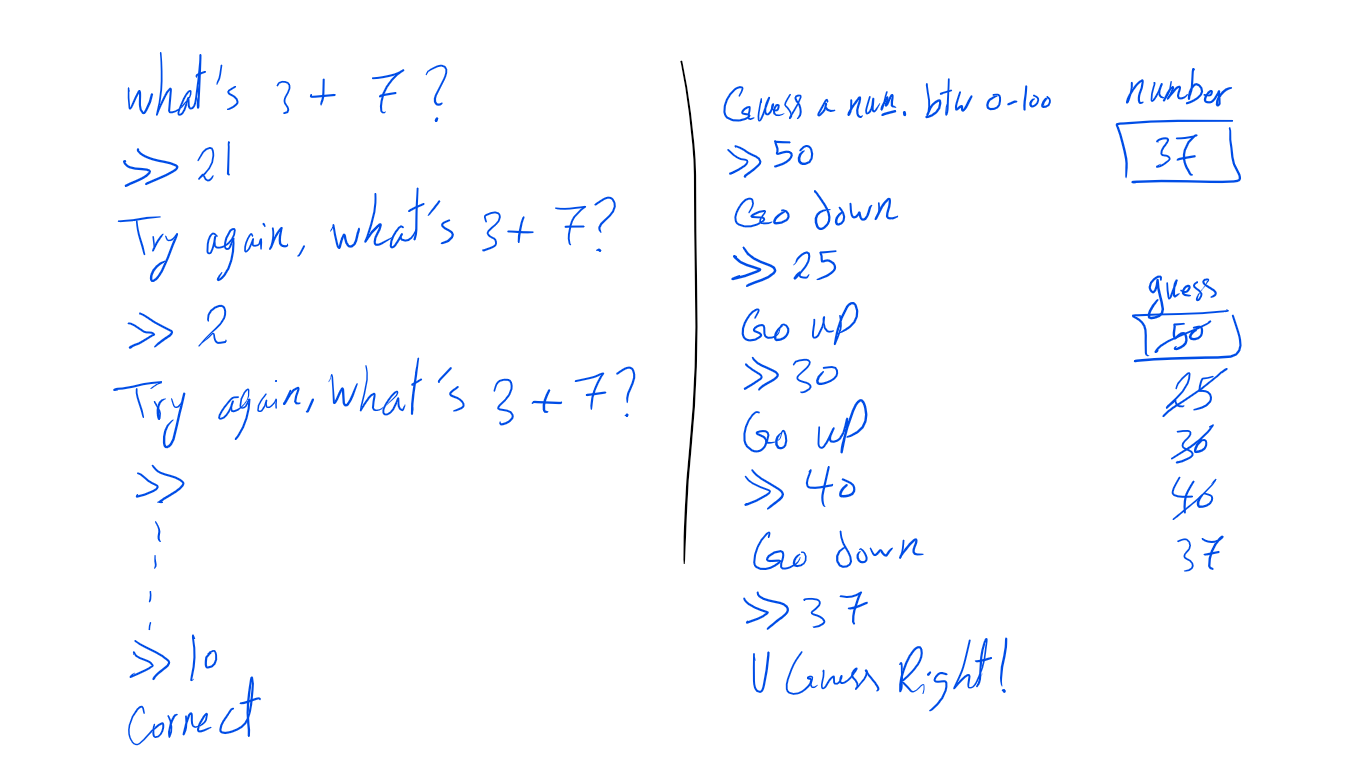 what's 3 + 7 ?
>> 21
Try again, what's 3 + 7?
>> 2
Try again, what's 3 + 7?
>>
>> 10
Correct
Guess a num. btw 0-100
>> 50
Go down
>> 25
Go up
>> 30
Go up
>> 40
Go down
>> 37
U Guess Right!
number
37
guess
50
25
30
40
37